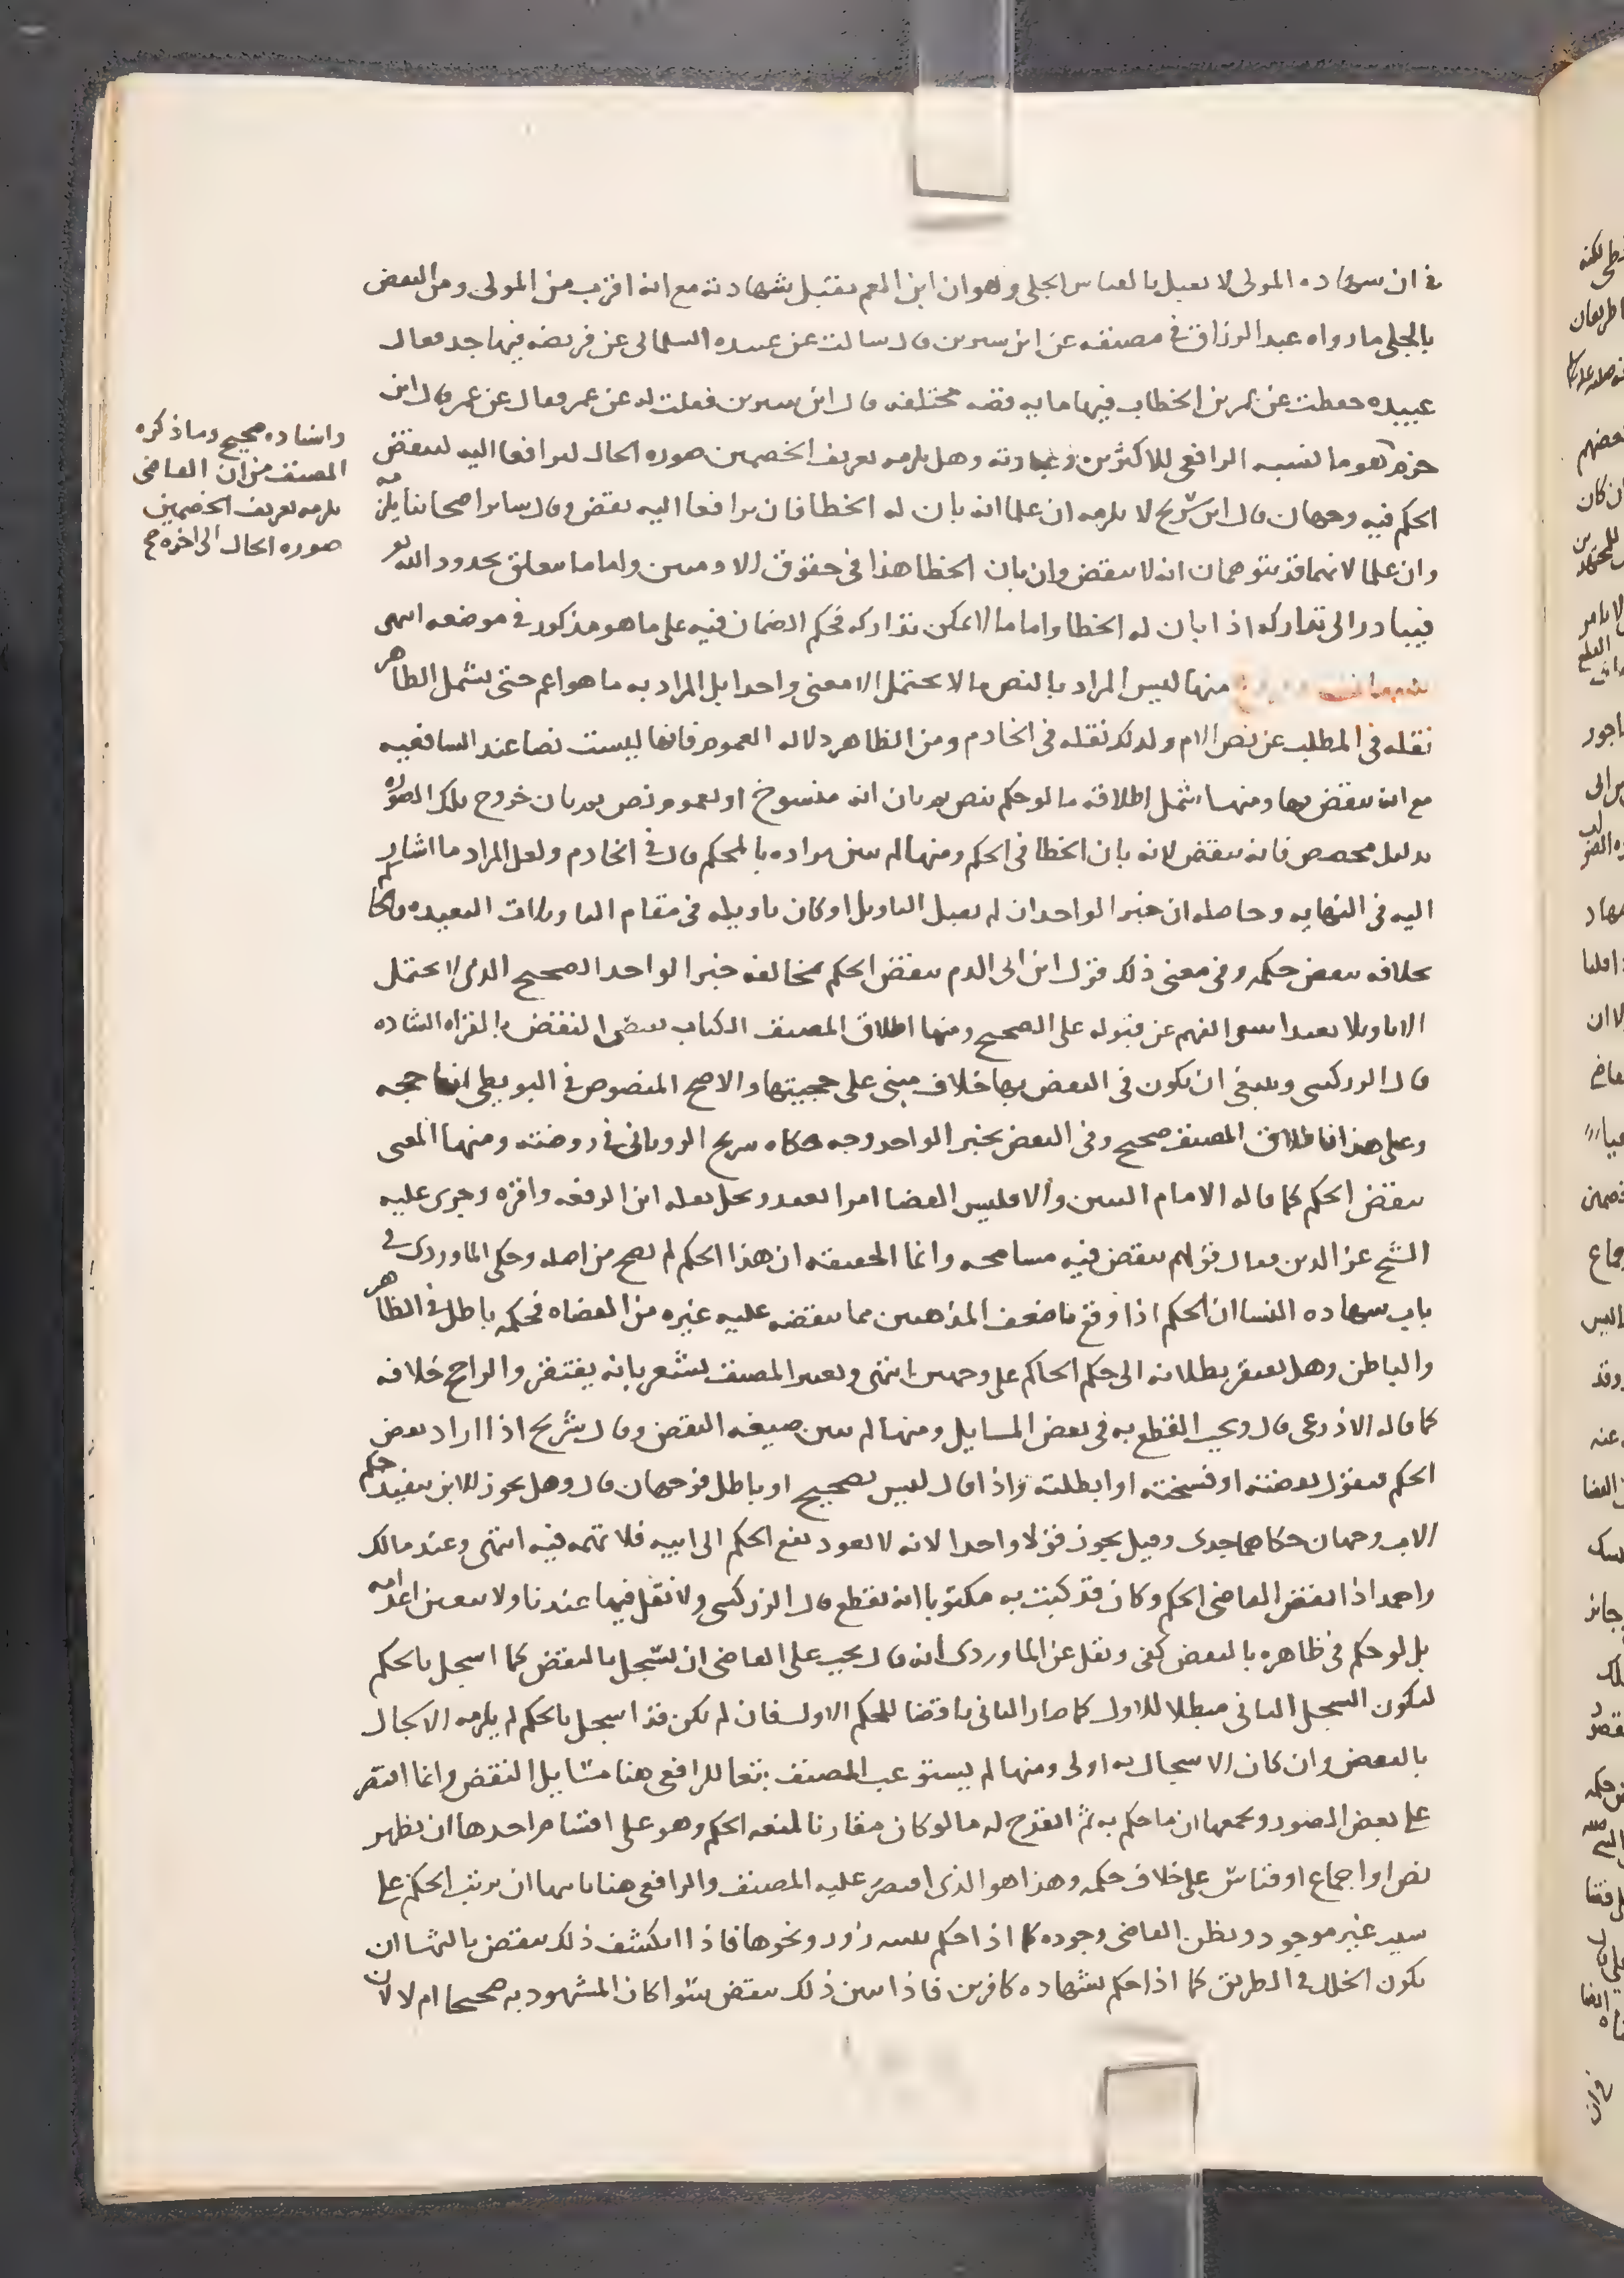 في ان شهاده المولى لا تقبل بالقياس الجلي وهو ان ابن العم تقبل شهادته مع انه اقرب من المولى ومن النقض
بالجلي ما رواه عبد الرزاق في مصنفه عن ابن سيرين قال سالت عن عبيده السلماني عن فريضه فيها جد فقال
عبيده حفظت عن عمر بن الخطاب فيها مايه قضه مختلفه قال ابن سيرين فقلت له عن عمر فقال عن عمر قال ابن
حزم هو ما نسبه الرافعي للاكثرين وعبارته وهل يلزمه تعريف الخصمين صوره الحال ليرافعا اليه لينقض
الحكم فيه وجهان قال ابن سريج لا يلزمه ان علما انه بان له الخطا فان ترافعا اليه نقض وقال ساير اصحابنا يلزمه
وان علما لانهما قد يتوهمان انه لا ينقض وان بان الخطا هذا في حقوق الادميين واما ما يتعلق بحدود الله تع
فيبادر الى تداركه اذا بان له الخطا واما ما لا يمكن تداركه فحكم الضمان فيه على ما هو مذكور في موضعه انتهى
تنبيهات منها ليس المراد بالنص ما لا يحتمل الا معنى واحدا بل المراد به ما هو اعم حتى يشمل الظاهر
نقله في المطلب عن نص الام ولذلك نقله في الخادم ومن الظاهر دلاله العموم فانها ليست نصا عند الشافعيه
مع انه ينقض بها ومنها شمل اطلاقه ما لو حكم بنص ثم بان انه منسوخ او بعموم نص ثم بان خروج تلك الصوره
بدليل مخصص فانه ينقض لانه بان الخطا في الحكم ومنها لم يبين مراده بالمحكم قال في الخادم ولعل المراد ما اشار
اليه في النهايه وحاصله ان خبر الواحد ان لم يقبل التاويل او كان تاويله في مقام التاويلات البعيده فالحكم
بخلافه ينقض حكمه وفي معنى ذلك قول ابن ابي الدم ينقض الحكم بمخالفه خبر الواحد الصحيح الذي لا يحتمل
الا تاويلا بعيدا ينبو الفهم عن قبوله على الصحيح ومنها اطلاق المصنف الكتاب يقتضي النقض بالقراه الشاده
قال الزركشي وينبغي ان يكون في النقض بها خلاف مبني على حجيتها والاصح المنصوص في البويطي انها حجه
وعلى هذا فاطلاق المصنف صحيح وفي النقض بخبر الواحد وجه حكاه سريج الروياني في روضته ومنها المعنى
بنقض الحكم كما قاله الامام التبيين والا فليس القضا امرا يعقد ويحل نقله ابن الرفعه واقره وجرى عليه
الشيخ عز الدين فقال قولهم ينقض فيه مسامحه وانما الحقيقه ان هذا الحكم لم يصح من اصله وحكى الماوردي في
باب شهاده النسا ان الحكم اذا وقع باضعف المذهبين مما ينقضه عليه غيره من القضاه فحكمه باطل في الظاهر
والباطن وهل يفتقر بطلانه الى حكم الحاكم على وجهين انتهى وتعبير المصنف يشعر بانه يفتقر والراجح خلافه
كما قاله الاذرعي قال ويجب القطع به في بعض المسايل ومنها لم يبين صيغه النقض وقال شريح اذا اراد نقض
الحكم فيقول نقضته او فسخته او ابطلته واذا قال ليس بصحيح او باطل فوجهان قال وهل يجوز للابن تنفيذ حكم
الاب وجهان حكاهما جدي وقيل يجوز قولا واحدا لانه لا يعود نفع الحكم الى ابيه فلا تهمه فيه انتهى وعند مالك
واحمد اذا نقض القاضي الحكم وكان قد كتب به مكتوبا انه يقطع قال الزركشي ولا نقل فيها عندنا ولا يتعين اعدامه
بل لو حكم في ظاهره بالنقض كفى ونقل عن الماوردي انه قال يجب على القاضي ان يسجل بالنقض كما اسجل بالحكم
ليكون السجل الثاني مبطلا للاول كما صار الثاني ناقضا للحكم الاول فان لم يكن قد اسجل بالحكم لم يلزمه الاسجال
بالنقض وان كان الاسجال به اولى ومنها لم يستوعب المصنف تبعا للرافعي هنا مسايل النقض وانما اقتصر
على بعض الصور ويجمعها ان ما حكم به ثم انقدح له ما لو كان مقارنا لمنعه الحكم وهو على اقسام احدها ان يظهر
نص او اجماع او قياس على خلاف حكمه وهذا هو الذي اقتصر عليه المصنف والرافعي هنا ثانيها ان يرتب الحكم على
سبب غير موجود ويظن القاضي وجوده كما اذا حكم ببينه زور ونحوها فاذا انكشف ذلك ينقض ثالثها ان
يكون الخلل في الطريق كما اذا حكم بشهاده كافرين فاذا تبين ذلك ينقض سوا كان المشهود به صحيحا ام لا لان
واسناده صحيح وما ذكره
المصنف من ان القاضي
يلزمه تعريف الخصمين
صوره الحال الى اخره صح